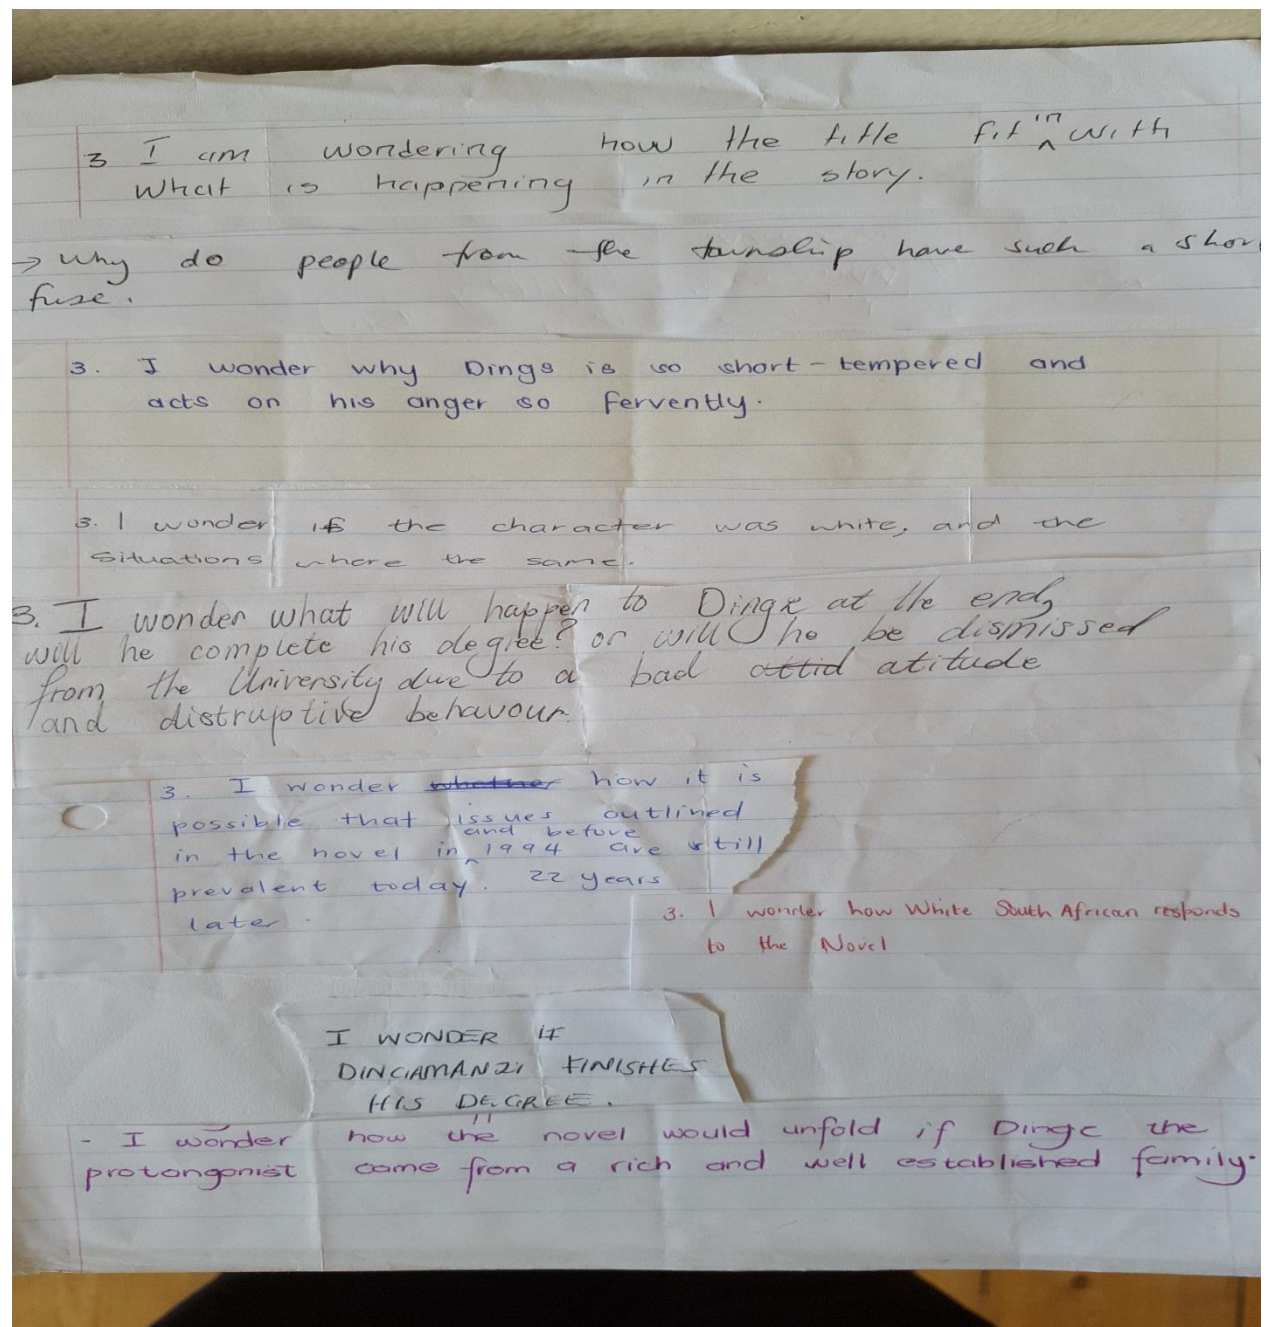 3 I am wondering how the title fit in with
what is happening in the story.
→ Why do people from the township have such a shor
fuse.
3. I wonder why Dings is so short-tempered and
acts on his anger so fervently.
3. I wonder if the character was white, and the
situations where the same.
3. I wonder what will happen to Dingz at the end,
will he complete his degree? or will he be dismissed
from the University due to a bad attid atitude
and distruptive behavour.
3. I wonder whether how it is
possible that issues outlined
in the novel in and before 1994 are still
prevalent today. 22 years
later.
3. I wonder how White South African responds
to the Novel
I WONDER IF
DINGAMANZI FINISHES
HIS DEGREE.
- I wonder how the novel would unfold if Dingz the
protangonist came from a rich and well established family.